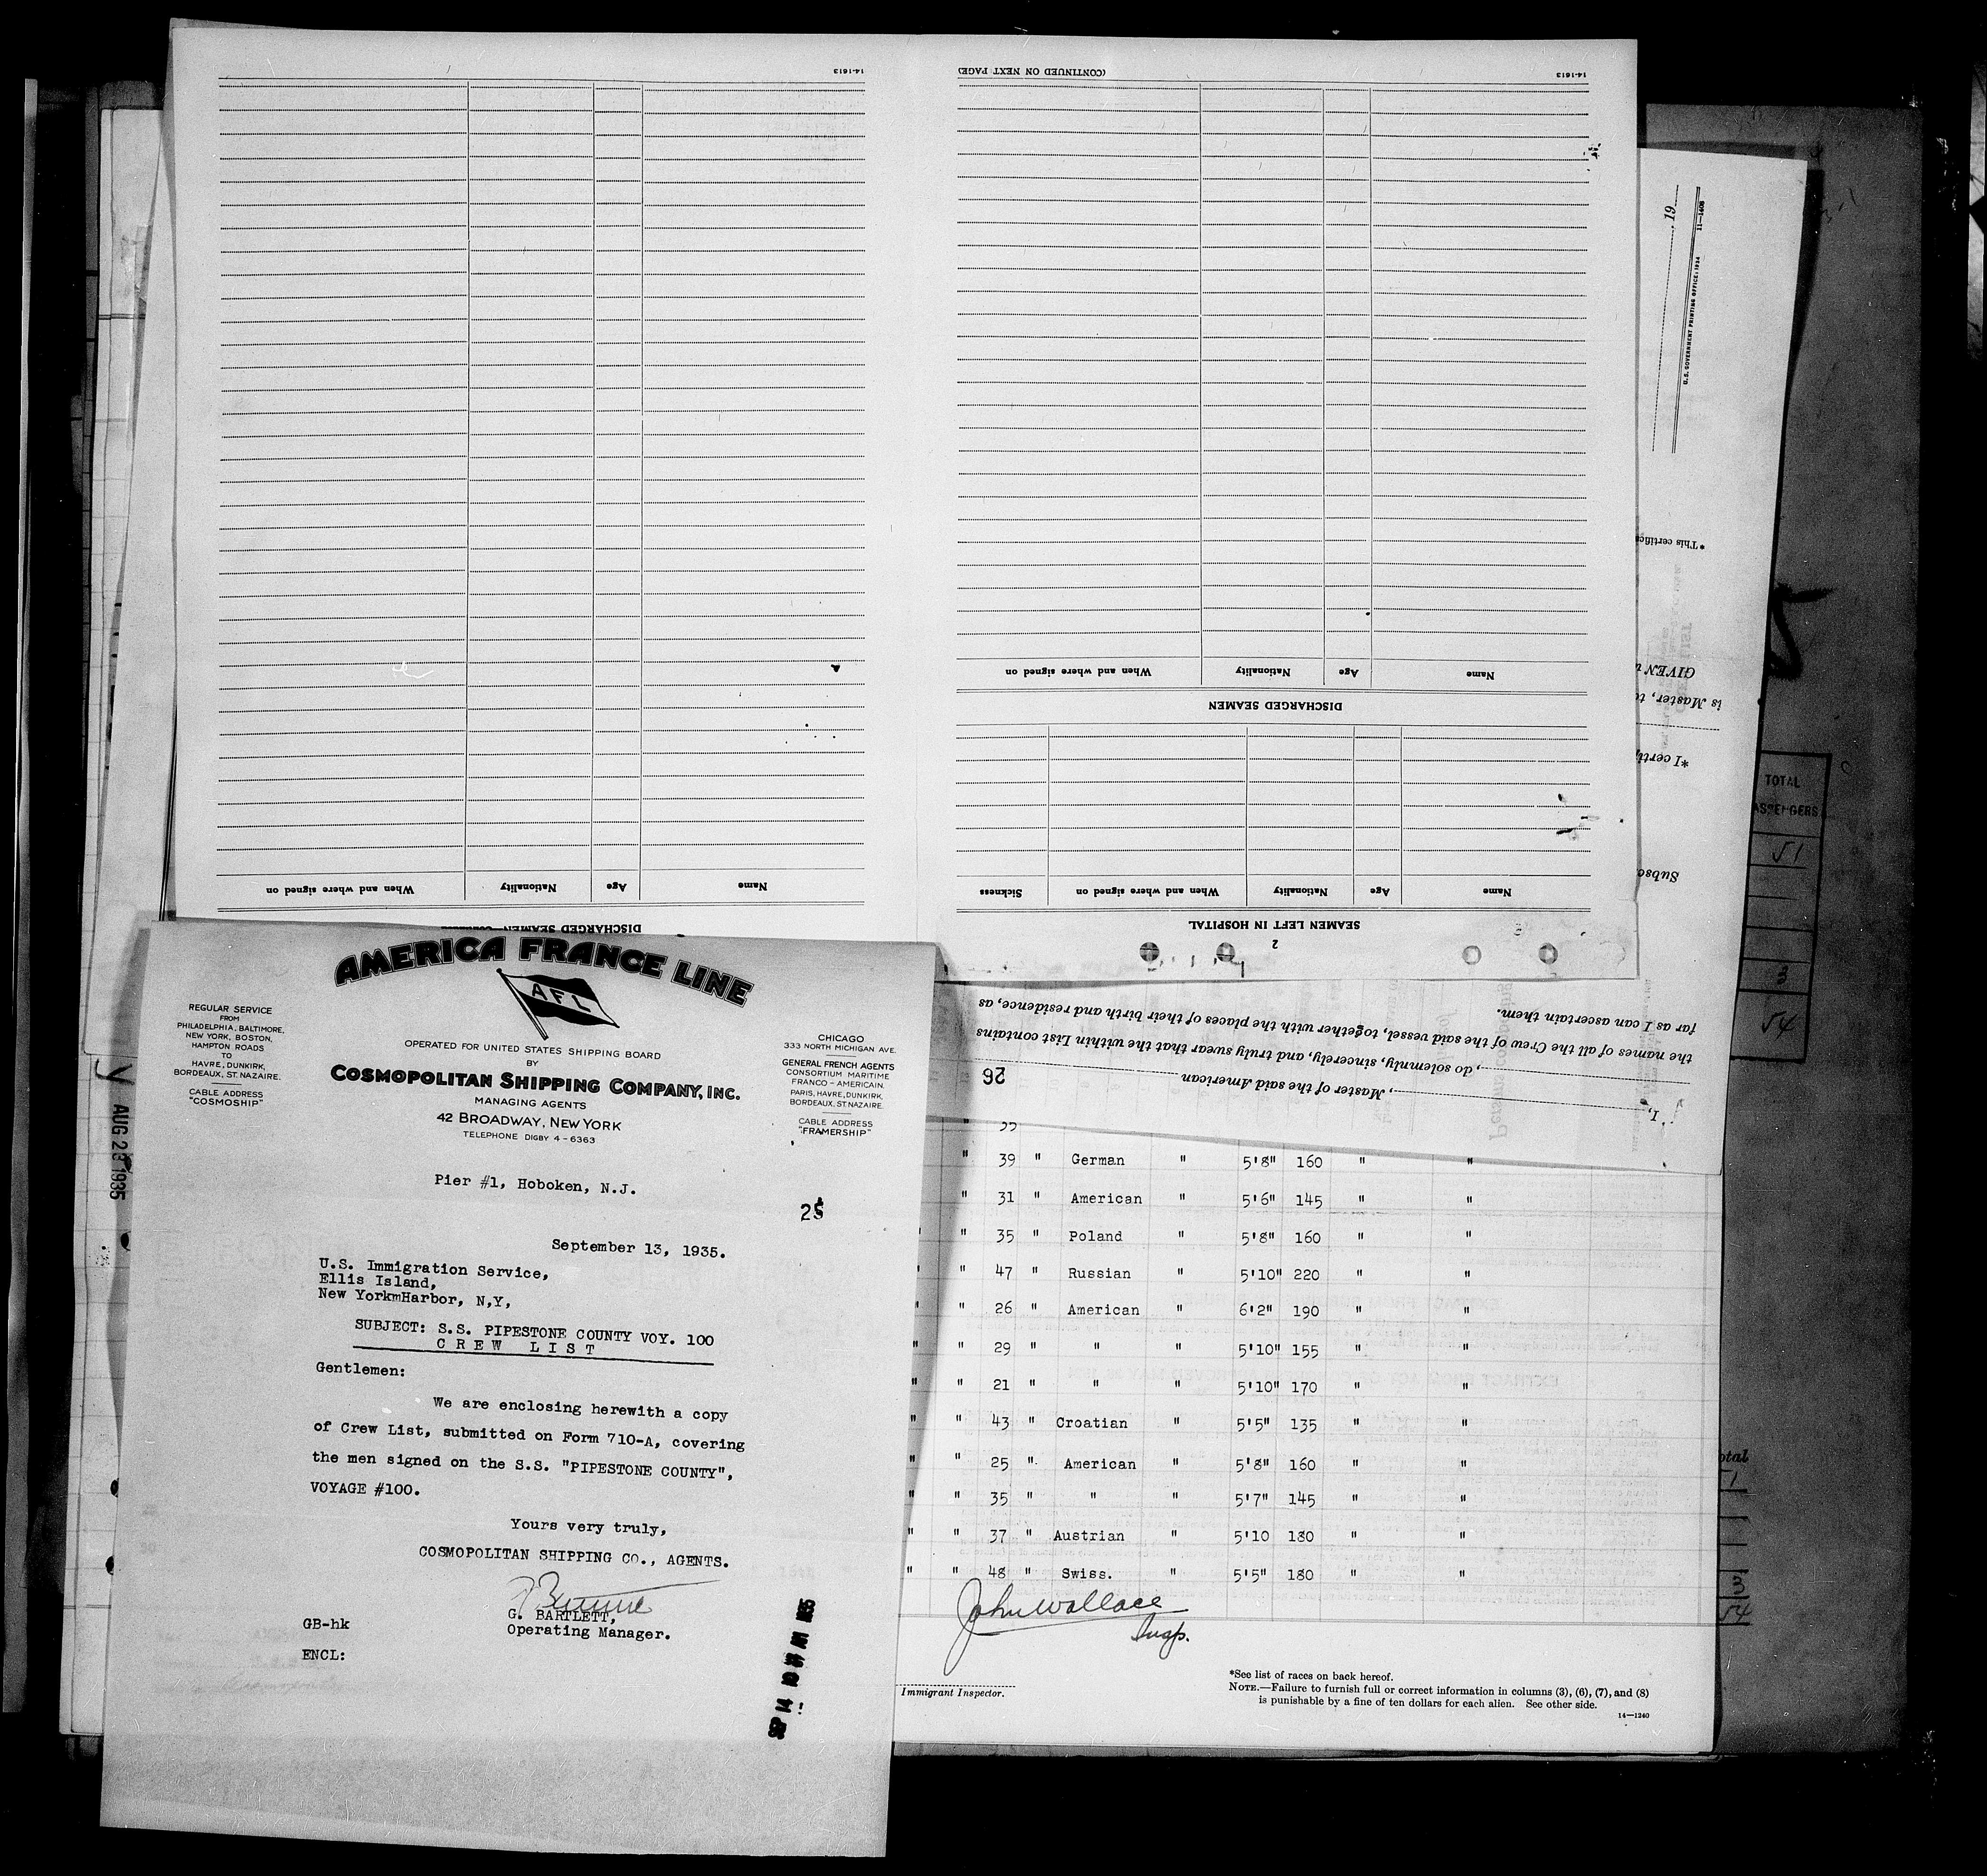 14-1613
(CONTINUED ON NEXT PAGE)
14-1613
Name
Age
Nationality
When and where signed on
DISCHARGED SEAMEN
Name
Age
Nationality
When and where signed on
Sickness
SEAMEN LEFT IN HOSPITAL
2
Name
Age
Nationality
When and where signed on
DISCHARGED SEAMEN
, 19
U.S. GOVERNMENT PRINTING OFFICE: 1934
11—1608
*This certific
GIVEN
is Master, t
*I certi
Subsc
TOTAL
ASSENGERS
51
3
54
I,
, Master of the said American
, do solemnly, sincerely, and truly swear that the within List contains
the names of all the Crew of the said vessel, together with the places of their birth and residence, as
far as I can ascertain them.
26
AUG 23 1935
AMERICA FRANCE LINE
AFL
REGULAR SERVICE
FROM
PHILADELPHIA, BALTIMORE,
NEW YORK, BOSTON,
HAMPTON ROADS
TO
HAVRE, DUNKIRK,
BORDEAUX, ST. NAZAIRE.
CABLE ADDRESS
"COSMOSHIP"
OPERATED FOR UNITED STATES SHIPPING BOARD
BY
COSMOPOLITAN SHIPPING COMPANY, INC.
MANAGING AGENTS
42 BROADWAY, NEW YORK
TELEPHONE DIGBY 4-6363
CHICAGO
333 NORTH MICHIGAN AVE.
GENERAL FRENCH AGENTS
CONSORTIUM MARITIME
FRANCO-AMERICAIN,
PARIS, HAVRE, DUNKIRK,
BORDEAUX, ST. NAZAIRE.
CABLE ADDRESS
"FRAMERSHIP"
Pier #1, Hoboken, N.J.
25
September 13, 1935.
U.S. Immigration Service,
Ellis Island,
New YorkmHarbor, N,Y,
SUBJECT: S.S. PIPESTONE COUNTY VOY. 100
C R E W   L I S T
Gentlemen:
We are enclosing herewith a copy
of Crew List, submitted on Form 710-A, covering
the men signed on the S.S. "PIPESTONE COUNTY",
VOYAGE #100.
Yours very truly,
COSMOPOLITAN SHIPPING CO., AGENTS.
G. BARTLETT,
Operating Manager.
GB-hk
ENCL:
" 39 " German " 5'8" 160 " "
" 31 " American " 5'6" 145 " "
" " 35 " Poland " 5'8" 160 " "
" " 47 " Russian " 5'10" 220 " "
" " 26 " American " 6'2" 190 " "
" " 29 " " " 5'10" 155 " "
" " 21 " " " 5'10" 170 " "
" " 43 " Croatian " 5'5" 135 " "
" " 25 " American " 5'8" 160 " "
" " 35 " " " 5'7" 145 " "
" " 37 " Austrian " 5'10 180 " "
" " 48 " Swiss. " 5'5" 180 " "
John Wallace
Insp.
Immigrant Inspector.
*See list of races on back hereof.
NOTE.—Failure to furnish full or correct information in columns (3), (6), (7), and (8)
is punishable by a fine of ten dollars for each alien. See other side.
14—1240
otal
54